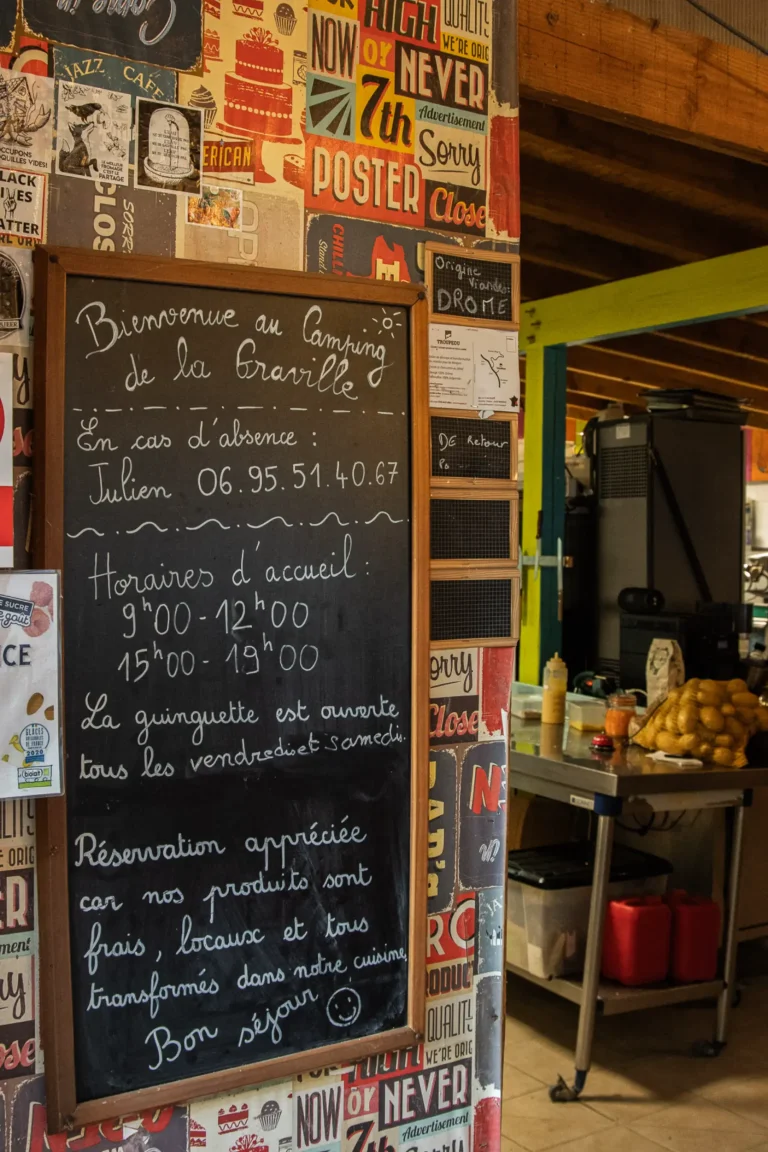 JAZZ CAFE
NOW
HIGH
or NEVER
7th
QUALITY
WE'RE ORIG
Advertisement
Sorry
POSTER
Close
ERICAN
LACK
IVES
ATTER
CLOS
SORRY
Bienvenue au Camping
de la Graville
En cas d'absence :
Julien 06.95.51.40.67
Horaires d'accueil :
9h00 - 12h00
15h00 - 19h00
La guinguette est ouverte
tous les vendredi et samedi.
Réservation appréciée
car nos produits sont
frais, locaux et tous
transformés dans notre cuisine
Bon séjour
Origine
Viandes:
DROME
DE Retour
orry
Close
SUCRE
goût
ICE
NOW or NEVER
7th
Advertisement
QUALITY
WE'RE ORIG